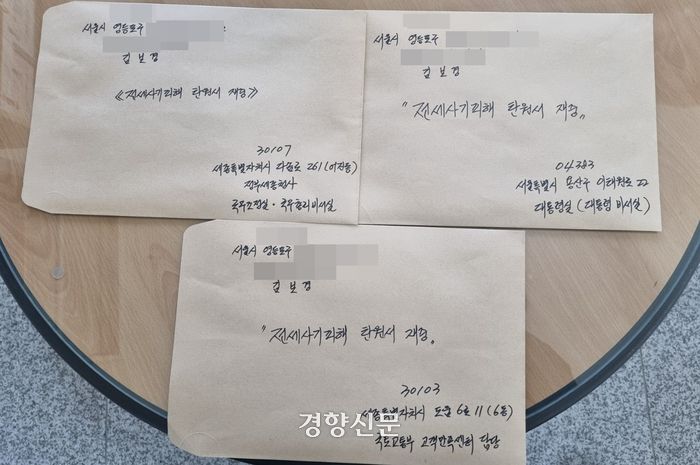 서울시 영등포구
김보경
《전세사기피해 탄원서 재중》
30107
세종특별자치시 다솜로 261 (어진동)
정부세종청사
국무조정실·국무총리비서실
서울시 영등포구
김보경
"전세사기피해 탄원서 재중"
04383
서울특별시 용산구 이태원로 22
대통령실 (대통령 비서실)
서울시 영등포구
김보경
"전세사기피해 탄원서 재중"
30103
세종특별자치시 도움6로 11 (6동)
국토교통부 고객만족센터 담당
경향신문